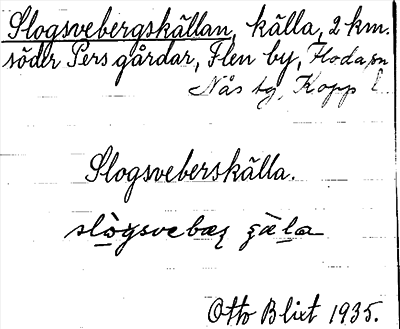 Slogsvebergskällan, källa, 2 km.
söder Pers gårdar, Flen by, Floda sn
Nås tg, Kopp l.
Slogsveberskälla.
Otto Blixt 1935.